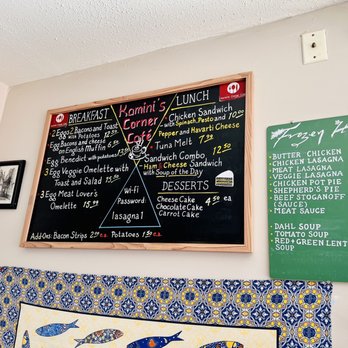 BREAKFAST
2 Eggs 2 Bacons and Toast 12.99
Egg Bacons and cheese
on English Muffin 6.50
Egg Benedict with potatoes 13.50
3 Egg Veggie Omelette with
Toast and Salad 15.99
3 Egg Meat Lover's
Omelette 15.99
Add-Ons: Bacon Strips 2.99 ea. Potatoes 1.50 ea.
Kamini's
Corner
Café
Wi-Fi
Password:
lasagna1
LUNCH
Chicken Sandwich
with Spinach, Pesto and 10.50
Pepper and Havarti Cheese
Tuna Melt 7.99
Sandwich Combo 12.50
Ham & Cheese Sandwich
with Soup of the Day
DESSERTS
Cheese Cake
Chocolate Cake 4.50 ea
Carrot Cake
Frozen
- BUTTER CHICKEN
- CHICKEN LASAGNA
- MEAT LASAGNA
- VEGGIE LASAGNA
- CHICKEN POT PIE
- SHEPHERD'S PIE
- BEEF STOGANOFF
(SAUCE)
- MEAT SAUCE
- DAHL SOUP
- TOMATO SOUP
- RED + GREEN LENT
SOUP